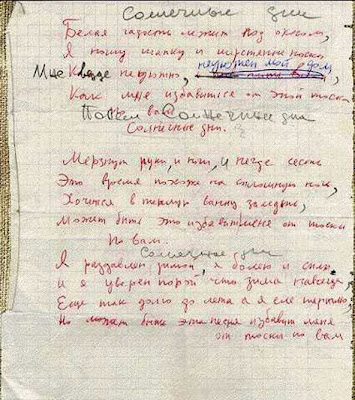 Солнечные дни
Белая гадость лежит под окном,
Я ношу шапку и шерстяные носки
неуютен мой дом
Мне везде неуютно,
Как мне избавиться от этой тоски
По вам Солнечные дни
Солнечные дни.
Мерзнут руки и ноги, и негде сесть
Это время похоже на сплошную ночь,
Хочется в теплую ванну залезть,
Может быть это избавит меня от тоски
По вам.
Солнечные дни
Я раздавлен зимой, я болею и сплю
и я уверен порой что зима навсегда,
Еще так долго до лета а я еле терплю,
Но может быть эта песня избавит меня
от тоски по вам